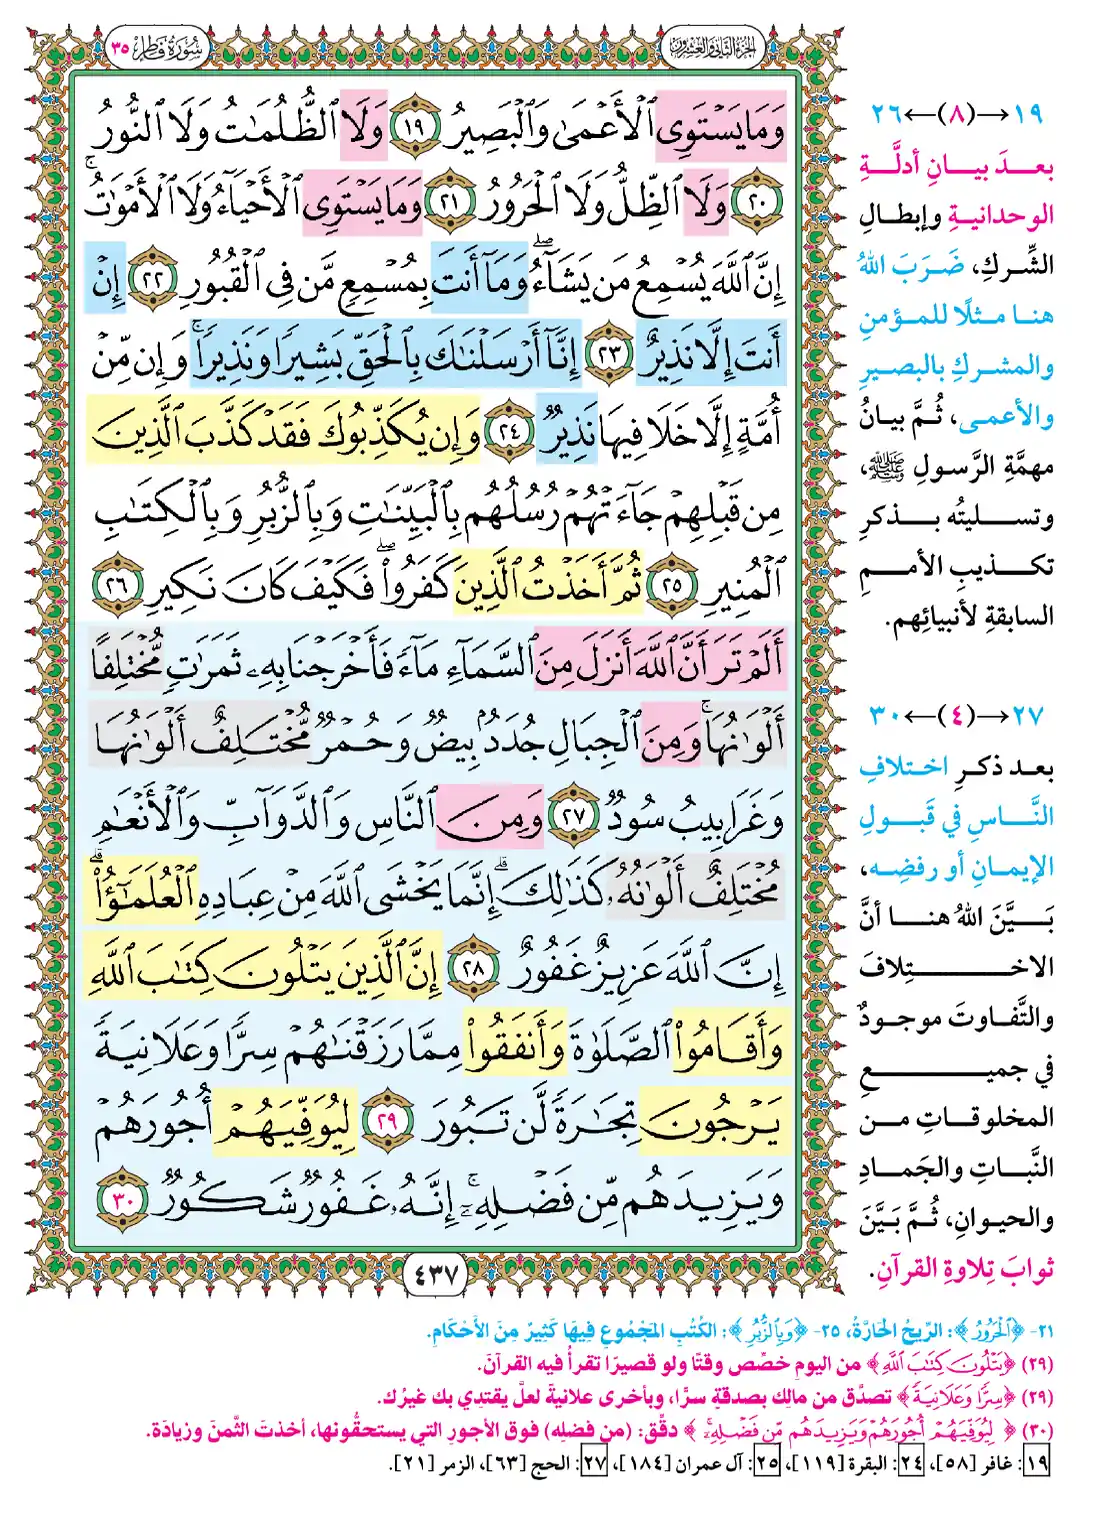 الجزء الثاني والعشرون
سورة فاطر ٣٥
وَمَا يَسْتَوِى ٱلْأَعْمَىٰ وَٱلْبَصِيرُ ١٩ وَلَا ٱلظُّلُمَـٰتُ وَلَا ٱلنُّورُ
٢٠ وَلَا ٱلظِّلُّ وَلَا ٱلْحَرُورُ ٢١ وَمَا يَسْتَوِى ٱلْأَحْيَآءُ وَلَا ٱلْأَمْوَٰتُ ۚ
إِنَّ ٱللَّهَ يُسْمِعُ مَن يَشَآءُ ۖ وَمَآ أَنتَ بِمُسْمِعٍ مَّن فِى ٱلْقُبُورِ ٢٢ إِنْ
أَنتَ إِلَّا نَذِيرٌ ٢٣ إِنَّآ أَرْسَلْنَـٰكَ بِٱلْحَقِّ بَشِيرًا وَنَذِيرًا ۚ وَإِن مِّنْ
أُمَّةٍ إِلَّا خَلَا فِيهَا نَذِيرٌ ٢٤ وَإِن يُكَذِّبُوكَ فَقَدْ كَذَّبَ ٱلَّذِينَ
مِن قَبْلِهِمْ جَآءَتْهُمْ رُسُلُهُم بِٱلْبَيِّنَـٰتِ وَبِٱلزُّبُرِ وَبِٱلْكِتَـٰبِ
ٱلْمُنِيرِ ٢٥ ثُمَّ أَخَذْتُ ٱلَّذِينَ كَفَرُوا۟ ۖ فَكَيْفَ كَانَ نَكِيرِ ٢٦
أَلَمْ تَرَ أَنَّ ٱللَّهَ أَنزَلَ مِنَ ٱلسَّمَآءِ مَآءً فَأَخْرَجْنَا بِهِۦ ثَمَرَٰتٍ مُّخْتَلِفًا
أَلْوَٰنُهَا ۚ وَمِنَ ٱلْجِبَالِ جُدَدٌۢ بِيضٌ وَحُمْرٌ مُّخْتَلِفٌ أَلْوَٰنُهَا
وَغَرَابِيبُ سُودٌ ٢٧ وَمِنَ ٱلنَّاسِ وَٱلدَّوَآبِّ وَٱلْأَنْعَـٰمِ
مُخْتَلِفٌ أَلْوَٰنُهُۥ كَذَٰلِكَ ۗ إِنَّمَا يَخْشَى ٱللَّهَ مِنْ عِبَادِهِ ٱلْعُلَمَـٰٓؤُا۟ ۗ
إِنَّ ٱللَّهَ عَزِيزٌ غَفُورٌ ٢٨ إِنَّ ٱلَّذِينَ يَتْلُونَ كِتَـٰبَ ٱللَّهِ
وَأَقَامُوا۟ ٱلصَّلَوٰةَ وَأَنفَقُوا۟ مِمَّا رَزَقْنَـٰهُمْ سِرًّا وَعَلَانِيَةً
يَرْجُونَ تِجَـٰرَةً لَّن تَبُورَ ٢٩ لِيُوَفِّيَهُمْ أُجُورَهُمْ
وَيَزِيدَهُم مِّن فَضْلِهِۦٓ ۚ إِنَّهُۥ غَفُورٌ شَكُورٌ ٣٠
٤٣٧
١٩→(٨)←٢٦
بعدَ بيانِ أدلَّةِ
الوحدانيةِ وإبطالِ
الشِّركِ، ضَرَبَ اللهُ
هنا مثلًا للمؤمنِ
والمشركِ بالبصيرِ
والأعمى، ثُمَّ بيانُ
مهمَّةِ الرَّسولِ ﷺ،
وتسليتُه بذكرِ
تكذيبِ الأممِ
السابقةِ لأنبيائِهم.
٢٧→(٤)←٣٠
بعد ذكرِ اختلافِ
النَّاسِ في قَبولِ
الإيمانِ أو رفضِه،
بَيَّنَ اللهُ هنا أنَّ
الاختِلافَ
والتَّفاوتَ موجودٌ
في جميعِ
المخلوقاتِ من
النَّباتِ والجَمادِ
والحيوانِ، ثُمَّ بَيَّنَ
ثوابَ تِلاوةِ القرآنِ.
٢١- ﴿ٱلْحَرُورُ﴾: الرِّيحُ الحَارَّةُ، ٢٥- ﴿وَبِٱلزُّبُرِ﴾: الكُتُبِ المَجْمُوعِ فِيهَا كَثِيرٌ مِنَ الأَحْكَامِ.
(٢٩) ﴿يَتْلُونَ كِتَـٰبَ ٱللَّهِ﴾ من اليومِ خصِّص وقتًا ولو قصيرًا تقرأُ فيه القرآنَ.
(٢٩) ﴿سِرًّا وَعَلَانِيَةً﴾ تصدَّق من مالِك بصدقةٍ سرًّا، وبأخرى علانيةً لعلَّ يقتدِي بك غيرُك.
(٣٠) ﴿لِيُوَفِّيَهُمْ أُجُورَهُمْ وَيَزِيدَهُم مِّن فَضْلِهِۦٓ ۚ﴾ دقِّق: (من فضلِه) فوق الأجورِ التي يستحقُّونها، أخذتَ الثَّمنَ وزيادَة.
١٩: غافر [٥٨]، ٢٤: البقرة [١١٩]، ٢٥: آل عمران [١٨٤]، ٢٧: الحج [٦٣]، الزمر [٢١].